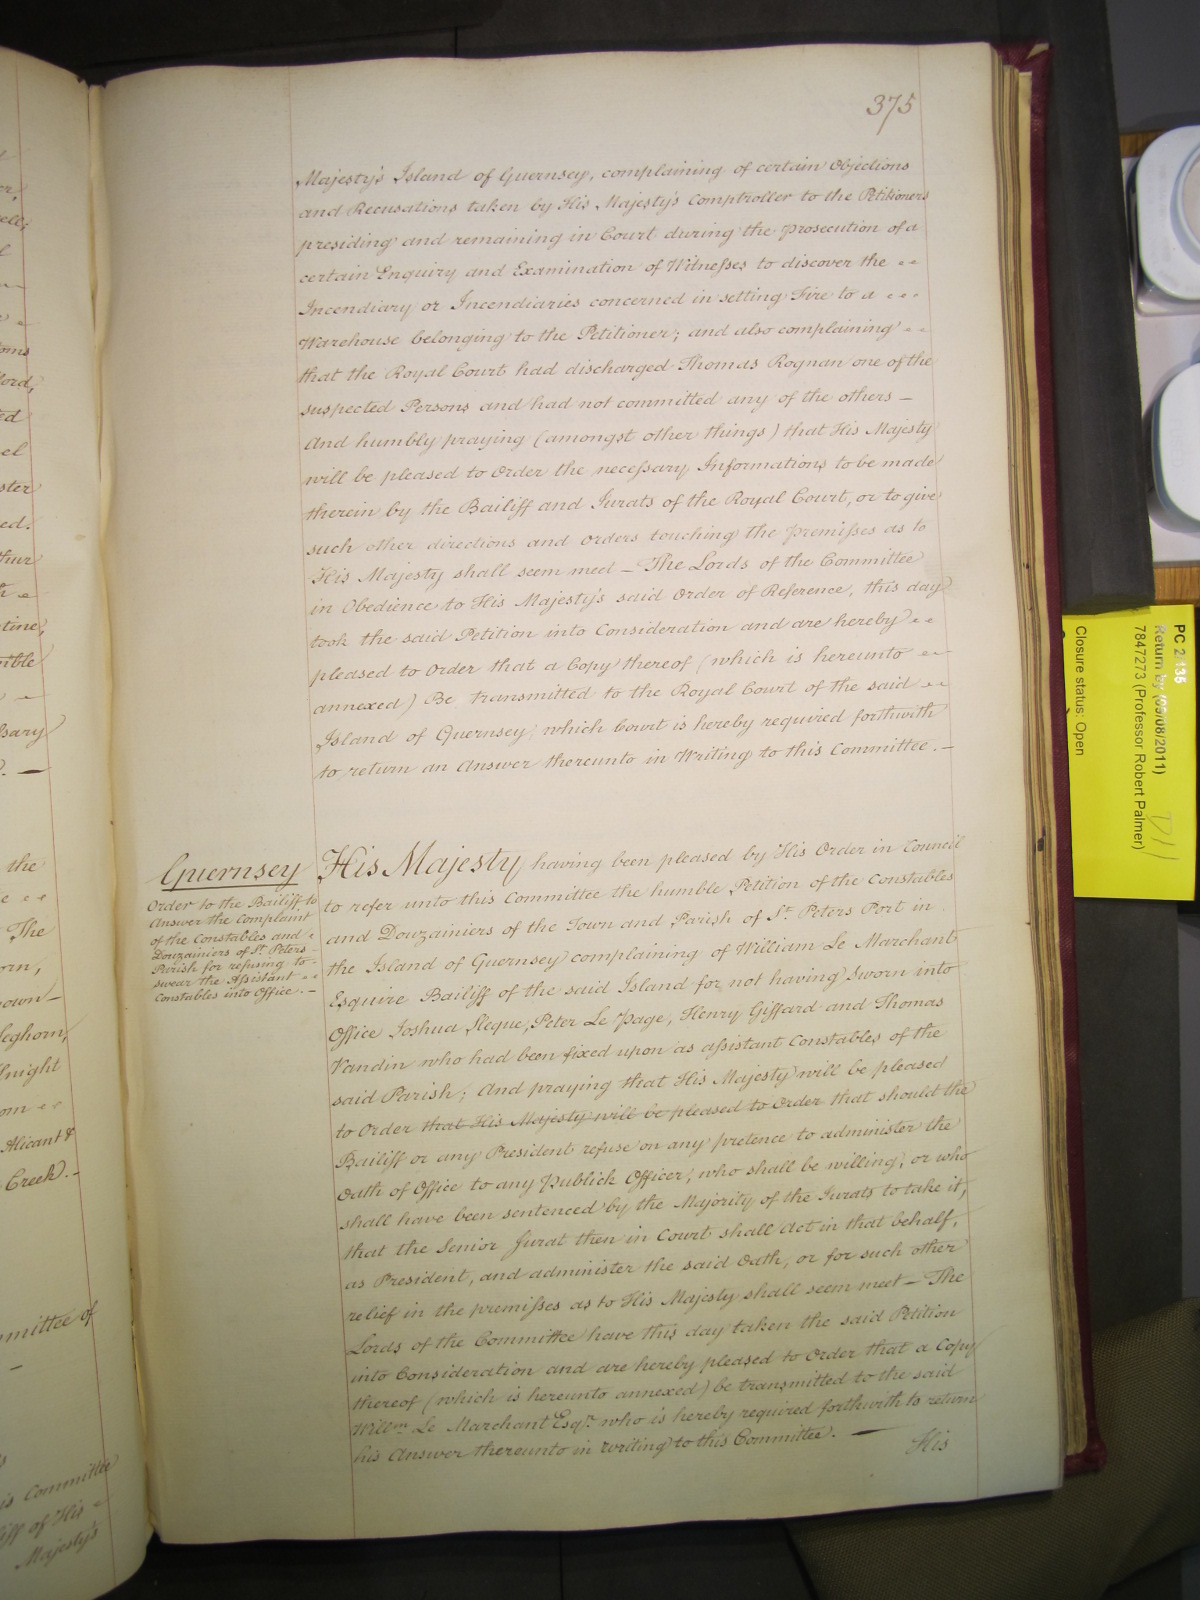 375
Majesty's Island of Guernsey, complaining of certain Objections
and Recusations taken by His Majesty's Comptroller to the Petitioners
presiding and remaining in Court during the prosecution of a
certain Enquiry and Examination of Witnesses to discover the
Incendiary or Incendiaries concerned in setting Fire to a
Warehouse belonging to the Petitioner; and also complaining
that the Royal Court had discharged Thomas Rognan one of the
suspected Persons and had not committed any of the others —
And humbly praying (amongst other things) that His Majesty
will be pleased to Order the necessary Informations to be made
therein by the Bailiff and Jurats of the Royal Court, or to give
such other directions and orders touching the premisses as to
His Majesty shall seem meet — The Lords of the Committee
in Obedience to His Majesty's said Order of Reference, this day
took the said Petition into Consideration and are hereby
pleased to Order that a Copy thereof (which is hereunto
annexed) Be transmitted to the Royal Court of the said
Island of Guernsey, which Court is hereby required forthwith
to return an Answer thereunto in Writing to this Committee. —
Guernsey
Order to the Bailiff to
Answer the Complaint
of the Constables and
Douzainiers of St. Peters
Parish for refusing to
swear the Assistant
Constables into Office. —
His Majesty having been pleased by His Order in Council
to refer unto this Committee the humble Petition of the Constables
and Douzainiers of the Town and Parish of St. Peters Port in
the Island of Guernsey complaining of William Le Marchant
Esquire Bailiff of the said Island for not having Sworn into
Office Joshua Pleque, Peter Le Page, Henry Giffard and Thomas
Vandin who had been fixed upon as assistant Constables of the
said Parish; And praying that His Majesty will be pleased
to Order that His Majesty will be pleased to Order that should the
Bailiff or any President refuse on any pretence to administer the
Oath of Office to any Publick Officer, who shall be willing, or who
shall have been sentenced by the Majority of the Jurats to take it,
that the Senior Jurat then in Court shall Act in that behalf,
as President, and administer the said Oath, or for such other
relief in the premisses as to His Majesty shall seem meet — The
Lords of the Committee have this day taken the said Petition
into Consideration and are hereby pleased to Order that a Copy
thereof (which is hereunto annexed) be transmitted to the said
Willm. Le Marchant Esqr. who is hereby required forthwith to return
his Answer thereunto in writing to this Committee. —
His
PC 2/135
Return by (09/08/2011)
7847273 (Professor Robert Palmer)
Closure status: Open